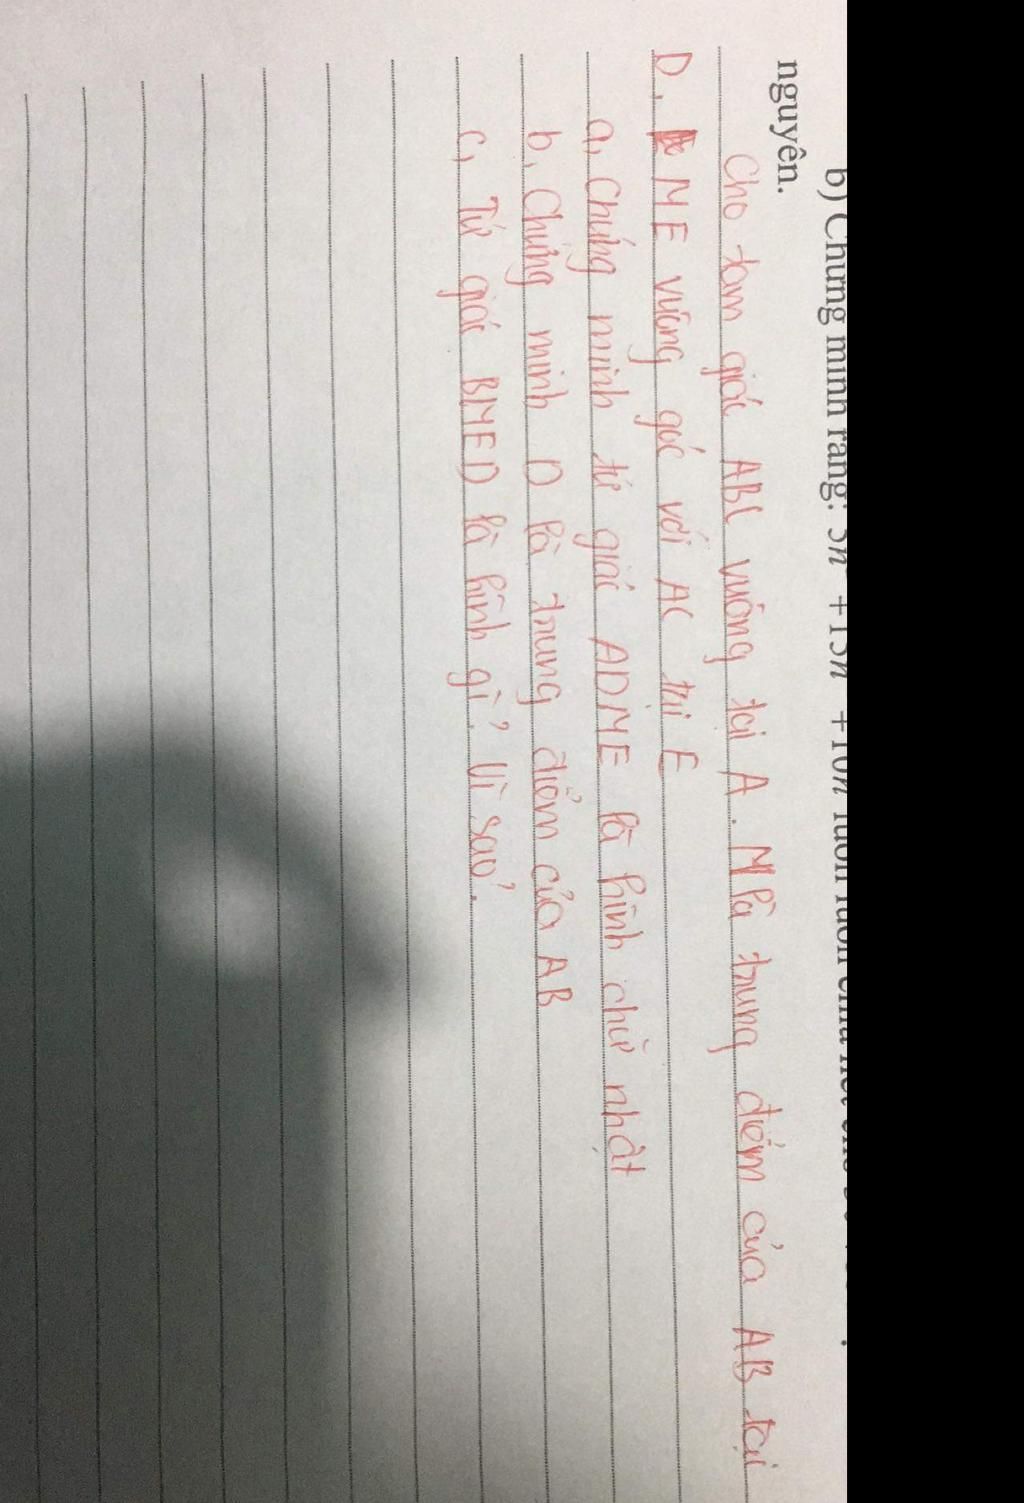 b) Chứng minh rằng: 5n + 15n + 10n luôn luôn chia hết cho
nguyên.
Cho tam giác ABC vuông tại A. M là trung điểm của AB tại
D, ME vuông góc với AC tại E
a, Chứng minh tứ giác ADME là hình chữ nhật
b, Chứng minh D là trung điểm của AB
c, Tứ giác BMED là hình gì? Vì sao?